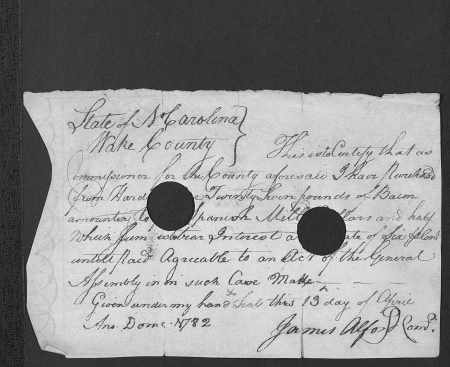 State of N Carolina
Wake County
This is to Certify that as
Commissioner for the County aforesaid I have Purchased
from Hard Twenty Seven pounds of Bacon
amounten to Spanish Mill Dollars and half
which Sum is to bear Interest a ate of Six Cent
untill Paid Agreable to an Act of the General
Assembly in in such Case Made
Given under my hand & Seal this 13 day of April
Ano Dome 1782
James Alford Com.